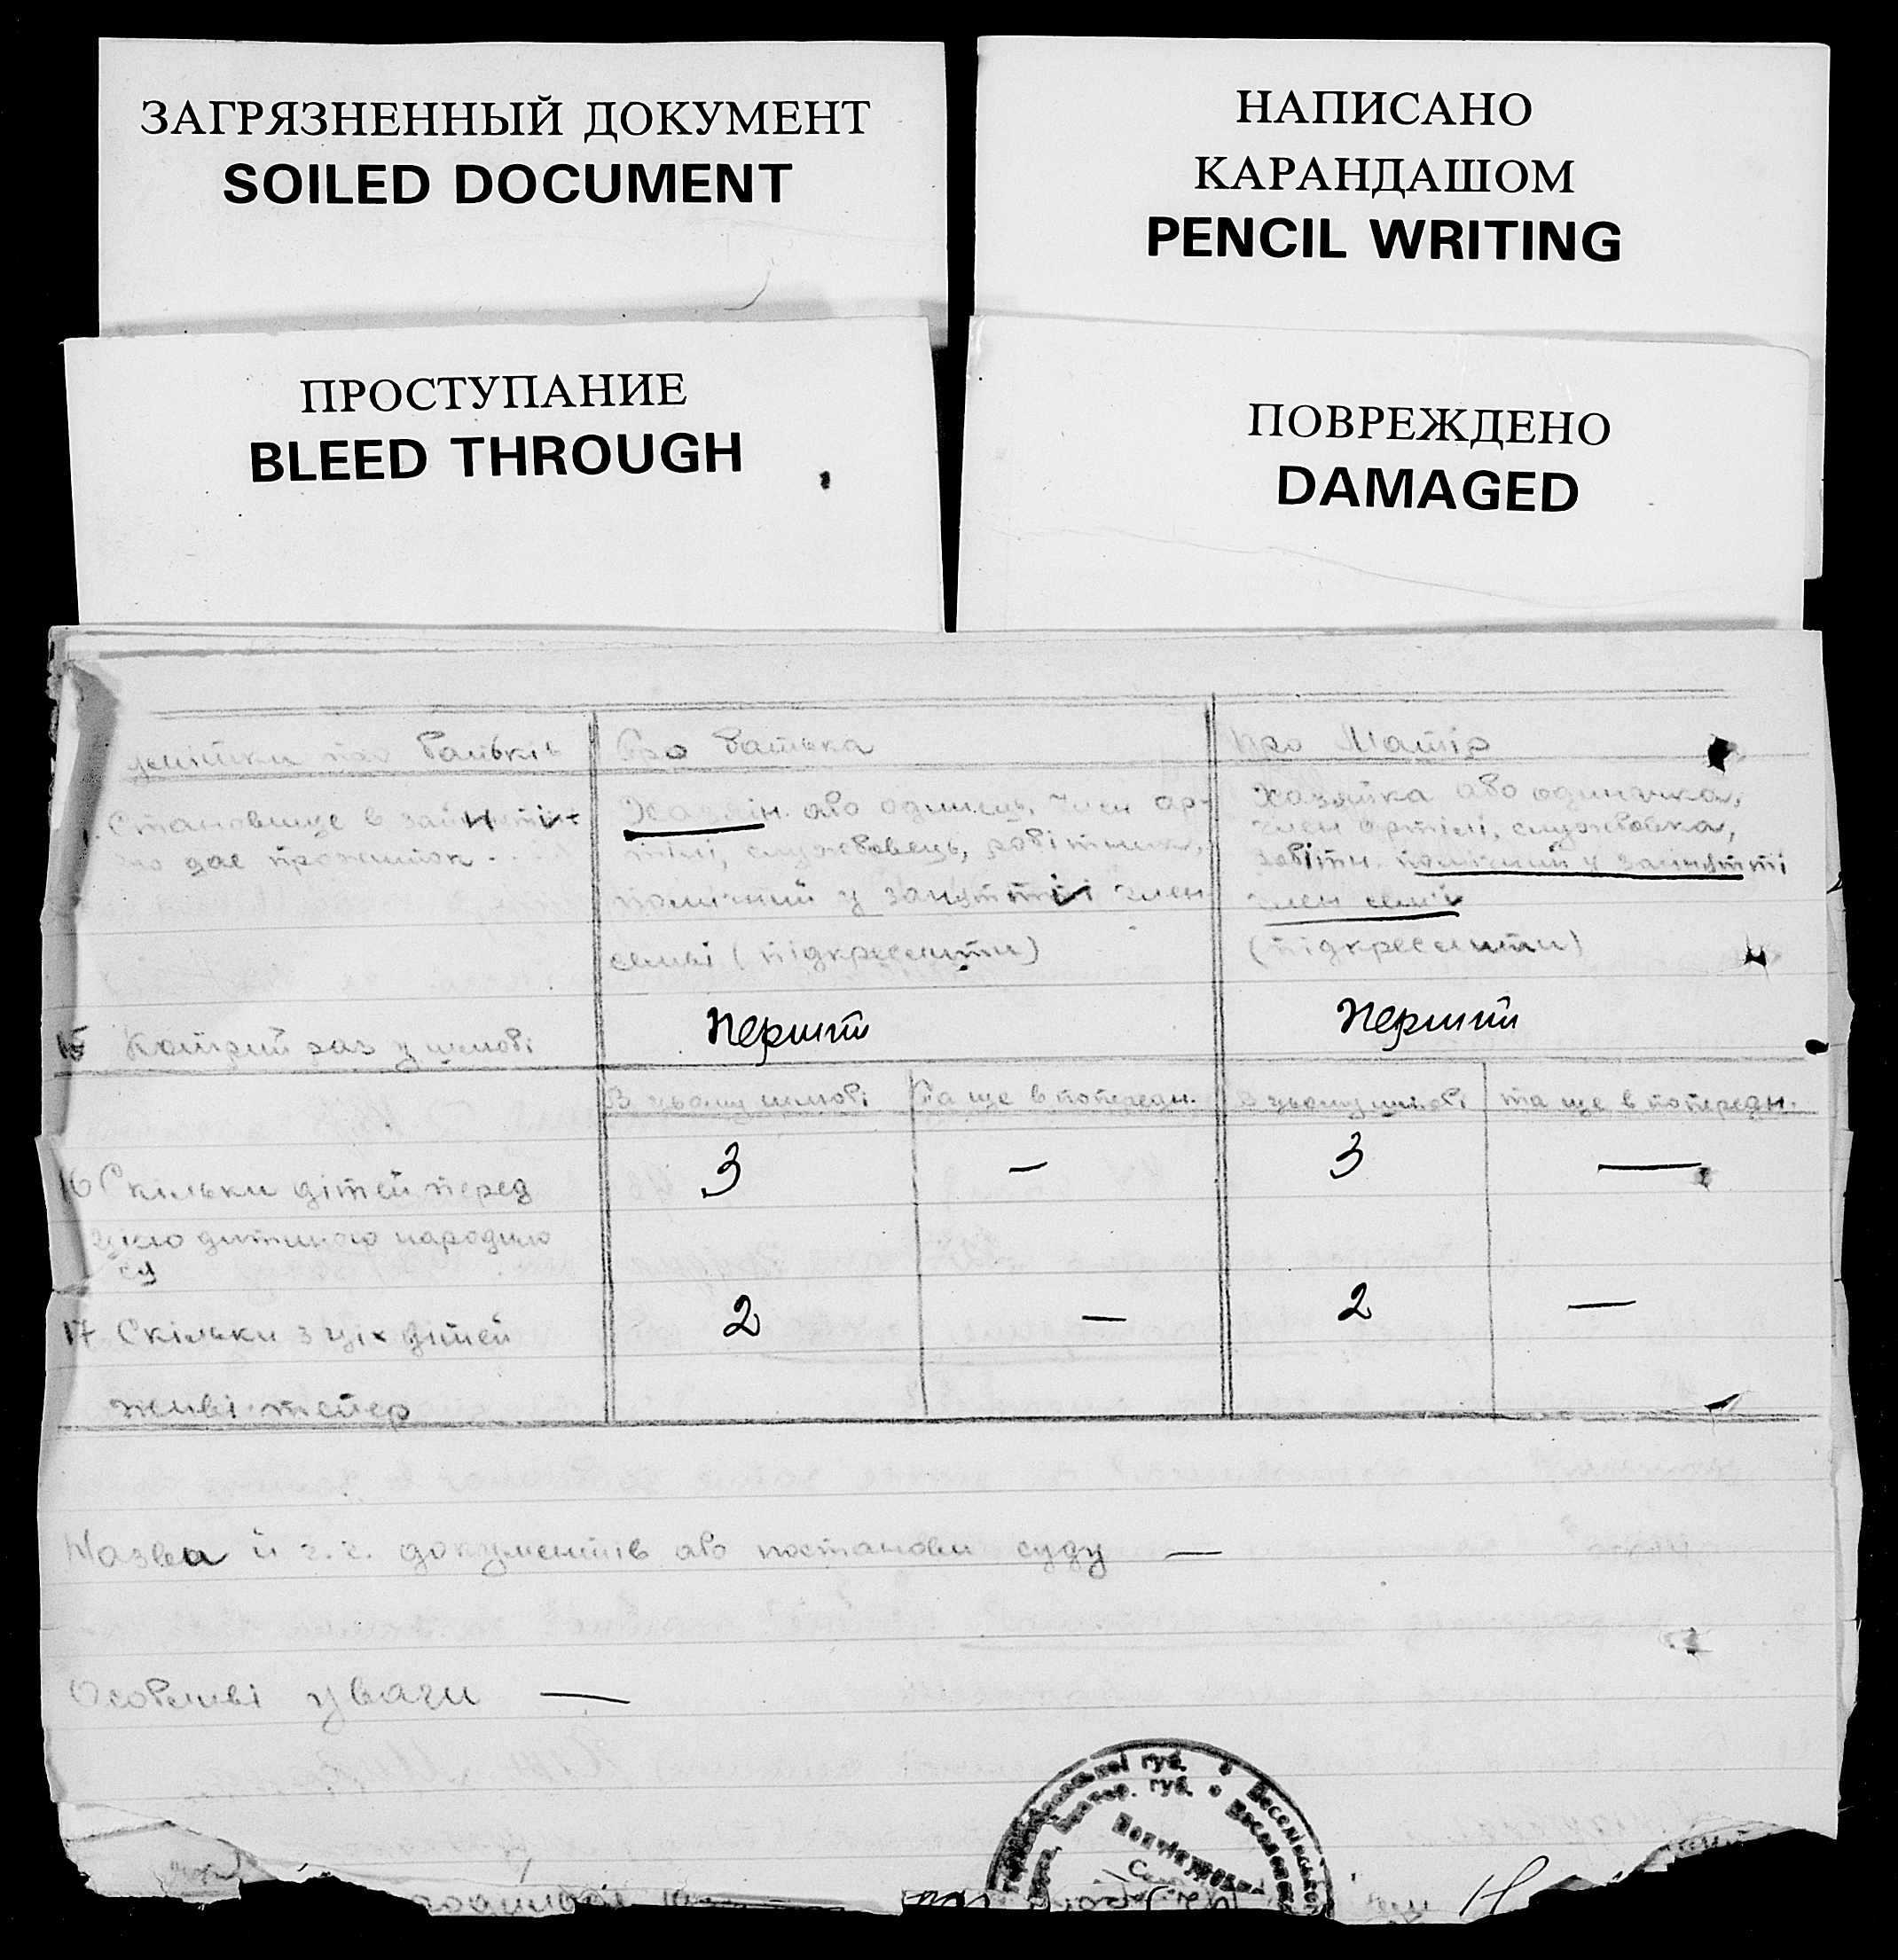 ЗАГРЯЗНЕННЫЙ ДОКУМЕНТ
SOILED DOCUMENT
НАПИСАНО
КАРАНДАШОМ
PENCIL WRITING
ПРОСТУПАНИЕ
BLEED THROUGH
ПОВРЕЖДЕНО
DAMAGED
про батьків
Про батька
Про Матір
Становище в занятті
що дає прожиток.
Хазяїн або одинець, член ар-
тілі, службовець, робітник,
помічний у занятті член
семьі (підкреслити)
Хазяйка або одиначка,
член артілі, службовка,
робітн. помічний у занятті
член семьі
(підкреслити)
15 Котрий раз у шлюбі
Перший
Перший
В цьому шлюбі
Та ще в попередн.
В цьому шлюбі
та ще в попередн.
16 Скільки дітей перед
цією дитиною народило
ся
3
—
3
—
17 Скільки з ціх дітей
живі тепер
2
—
2
—
Назва й ч.ч. документів або постанови суду —
Особливі уваги —
губ.
губ.